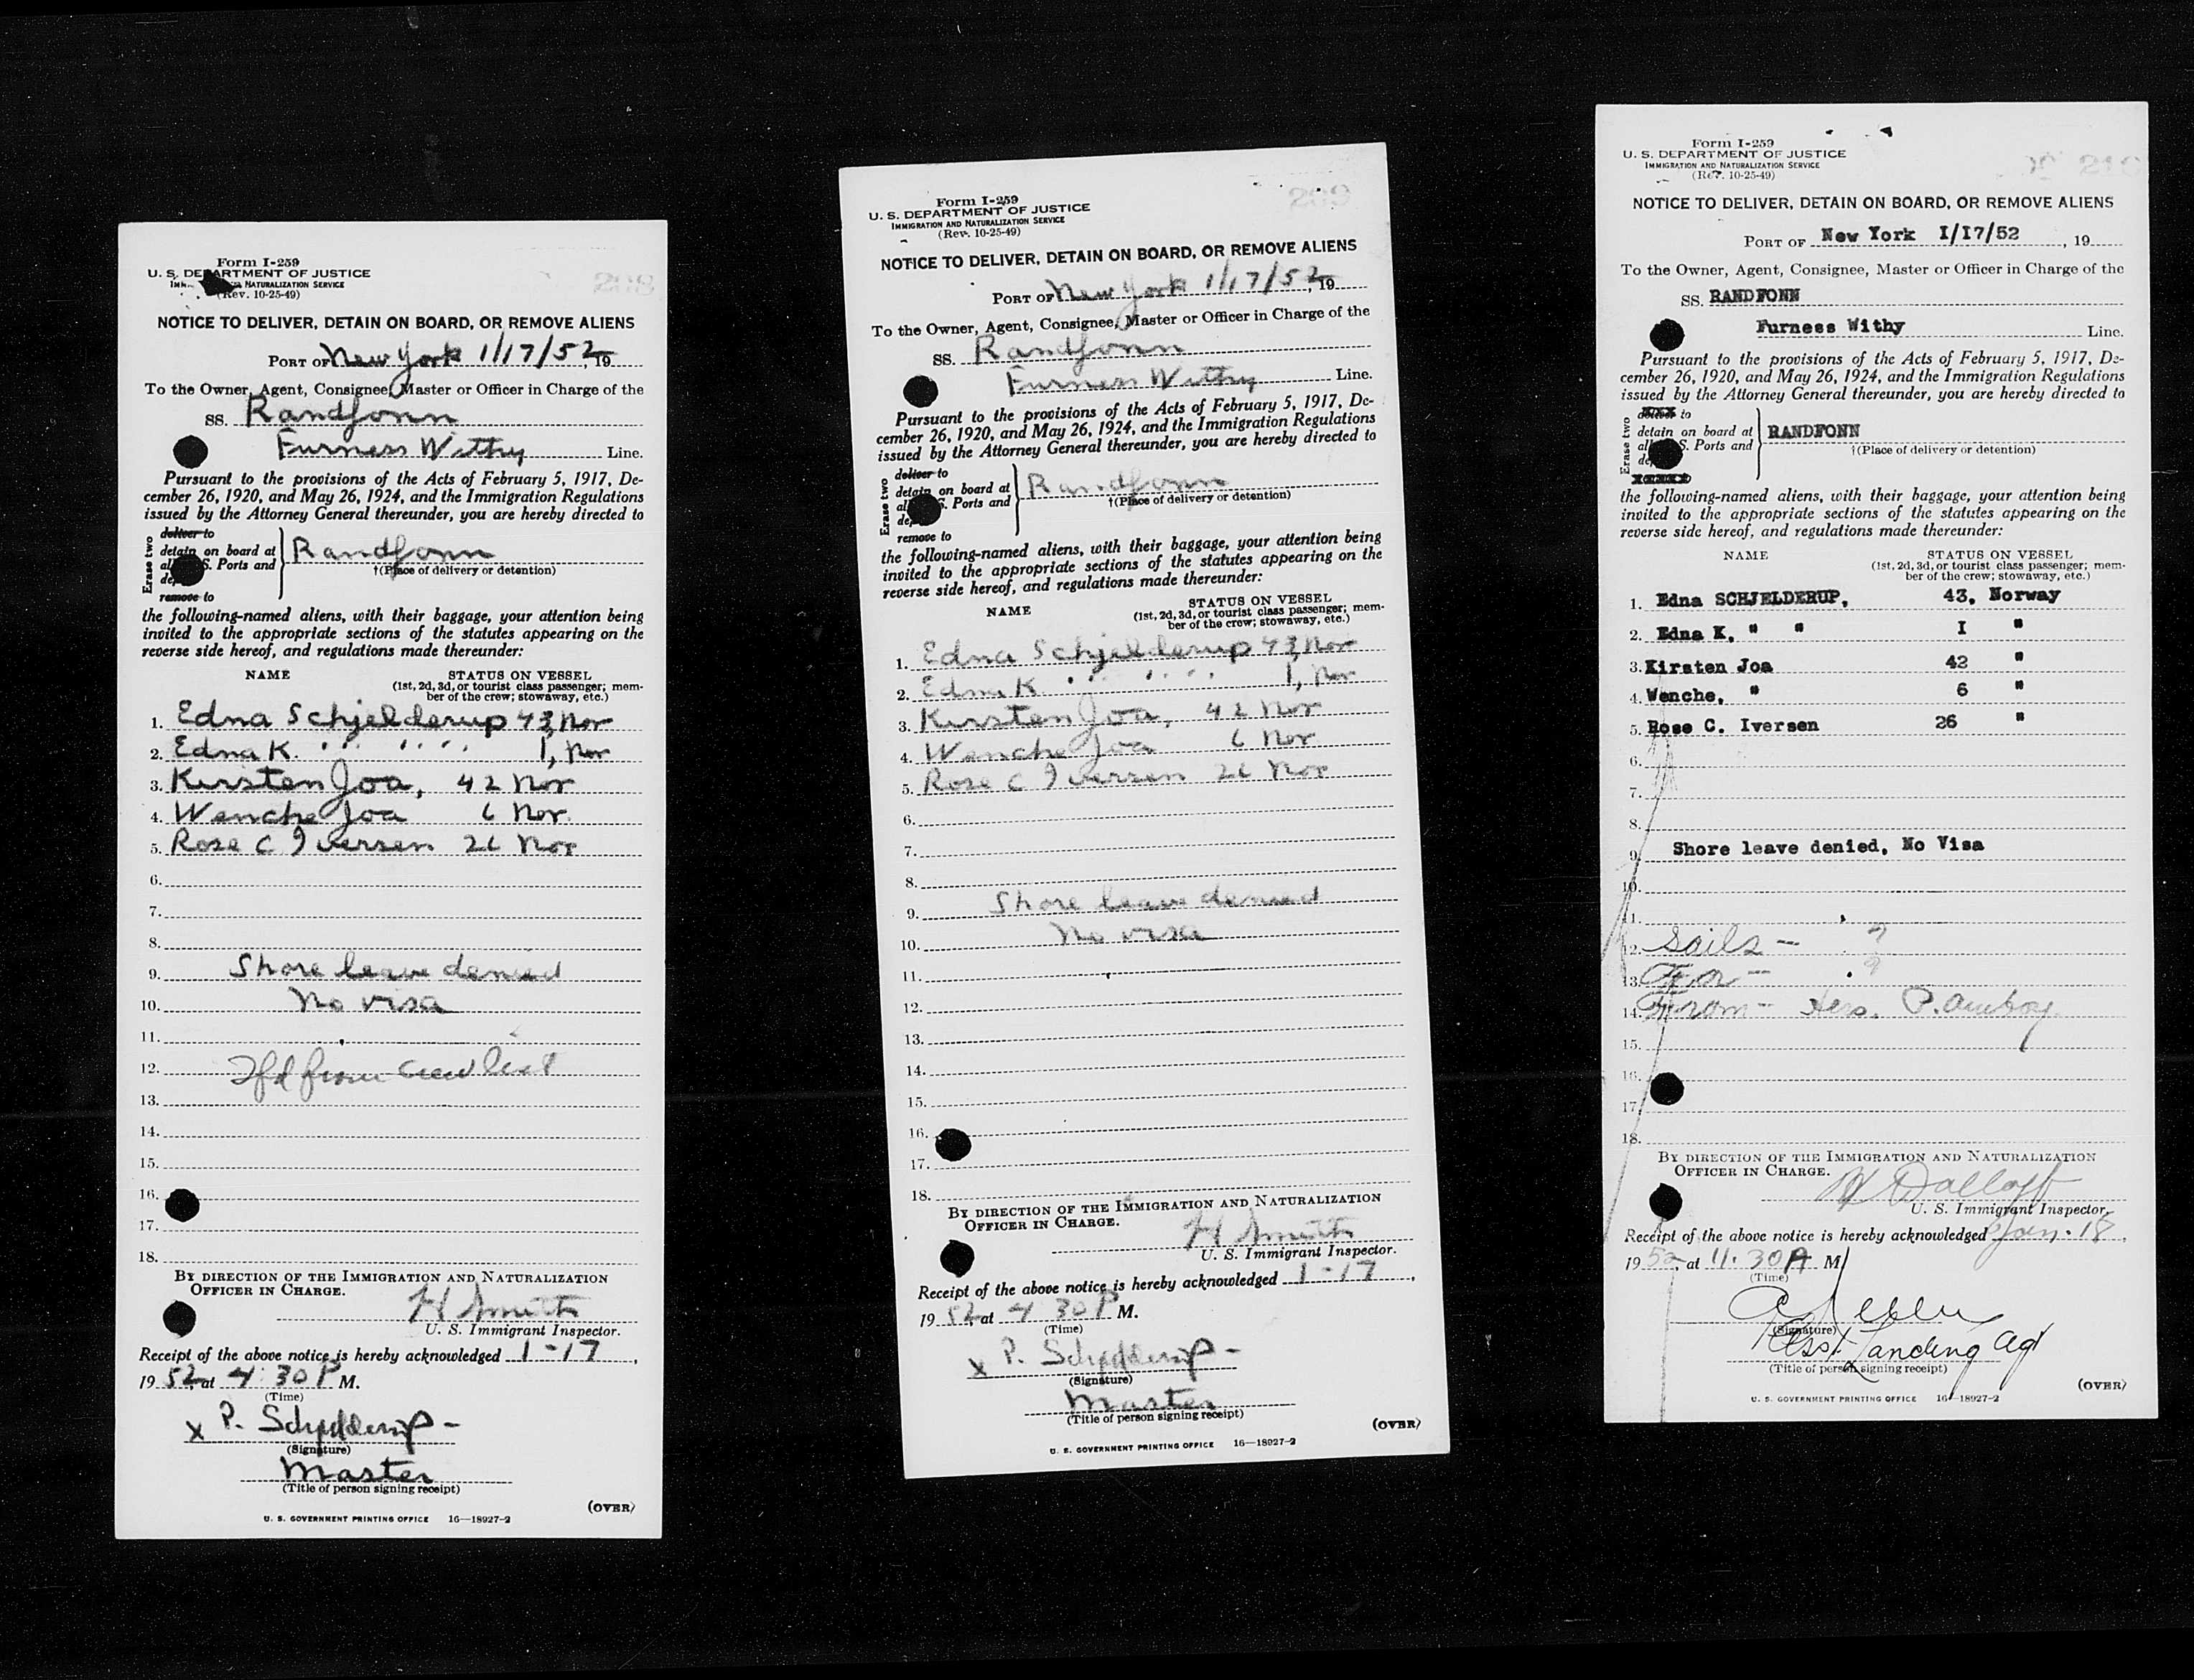 Form I-259
U. S. DEPARTMENT OF JUSTICE
IMMIGRATION AND NATURALIZATION SERVICE
(Rev. 10-25-49)
208
NOTICE TO DELIVER, DETAIN ON BOARD, OR REMOVE ALIENS
PORT OF New York 1/17/52, 19
To the Owner, Agent, Consignee, Master or Officer in Charge of the
SS. Randfonn
Furness Withy Line.
Pursuant to the provisions of the Acts of February 5, 1917, De-
cember 26, 1920, and May 26, 1924, and the Immigration Regulations
issued by the Attorney General thereunder, you are hereby directed to
Erase two
deliver to
detain on board at
all U. S. Ports and
remove to
Randfonn
†(Place of delivery or detention)
the following-named aliens, with their baggage, your attention being
invited to the appropriate sections of the statutes appearing on the
reverse side hereof, and regulations made thereunder:
NAME STATUS ON VESSEL
(1st, 2d, 3d, or tourist class passenger; mem-
ber of the crew; stowaway, etc.)
1. Edna Schjelderup 43, Nor
2. Edna K. " " 1, Nor
3. Kirsten Joa, 42 Nor
4. Wenche Joa 6 Nor.
5. Rose C Iversen 26 Nor
6.
7.
8.
9. Shore leave denied
10. No visa
11.
12. Tfd from Crew list
13.
14.
15.
16.
17.
18.
BY DIRECTION OF THE IMMIGRATION AND NATURALIZATION
OFFICER IN CHARGE.
H Smith
U. S. Immigrant Inspector.
Receipt of the above notice is hereby acknowledged 1-17,
19 52, at 4:30 P M.
(Time)
x P. Schjelderup -
(Signature)
Master
(Title of person signing receipt)
(OVER)
U. S. GOVERNMENT PRINTING OFFICE 16—18927-2
Form I-259
U. S. DEPARTMENT OF JUSTICE
IMMIGRATION AND NATURALIZATION SERVICE
(Rev. 10-25-49)
209
NOTICE TO DELIVER, DETAIN ON BOARD, OR REMOVE ALIENS
PORT OF New York 1/17/52, 19
To the Owner, Agent, Consignee, Master or Officer in Charge of the
SS. Randfonn
Furness Withy Line.
Pursuant to the provisions of the Acts of February 5, 1917, De-
cember 26, 1920, and May 26, 1924, and the Immigration Regulations
issued by the Attorney General thereunder, you are hereby directed to
Erase two
deliver to
detain on board at
all U. S. Ports and
remove to
Randfonn
†(Place of delivery or detention)
the following-named aliens, with their baggage, your attention being
invited to the appropriate sections of the statutes appearing on the
reverse side hereof, and regulations made thereunder:
NAME STATUS ON VESSEL
(1st, 2d, 3d, or tourist class passenger; mem-
ber of the crew; stowaway, etc.)
1. Edna Schjelderup 43, Nor
2. Edna K " " 1, Nor
3. Kirsten Joa, 42 Nor
4. Wenche Joa 6 Nor
5. Rose C Iversen 26 Nor
6.
7.
8.
9. Shore leave denied
10. No visa
11.
12.
13.
14.
15.
16.
17.
18.
BY DIRECTION OF THE IMMIGRATION AND NATURALIZATION
OFFICER IN CHARGE.
H Smith
U. S. Immigrant Inspector.
Receipt of the above notice is hereby acknowledged 1-17,
19 52, at 4 30 P M.
(Time)
x P. Schjelderup -
(Signature)
Master
(Title of person signing receipt)
(OVER)
U. S. GOVERNMENT PRINTING OFFICE 16—18927-2
Form I-259
U. S. DEPARTMENT OF JUSTICE
IMMIGRATION AND NATURALIZATION SERVICE
(Rev. 10-25-49)
210
NOTICE TO DELIVER, DETAIN ON BOARD, OR REMOVE ALIENS
PORT OF New York 1/17/52, 19
To the Owner, Agent, Consignee, Master or Officer in Charge of the
SS. RANDFONN
Furness Withy Line.
Pursuant to the provisions of the Acts of February 5, 1917, De-
cember 26, 1920, and May 26, 1924, and the Immigration Regulations
issued by the Attorney General thereunder, you are hereby directed to
Erase two
to
detain on board at
all U. S. Ports and
RANDFONN
†(Place of delivery or detention)
the following-named aliens, with their baggage, your attention being
invited to the appropriate sections of the statutes appearing on the
reverse side hereof, and regulations made thereunder:
NAME STATUS ON VESSEL
(1st, 2d, 3d, or tourist class passenger; mem-
ber of the crew; stowaway, etc.)
1. Edna SCHJELDERUP, 43, Norway
2. Edna K, " " I "
3. Kirsten Joa 42 "
4. Wenche, " 6 "
5. Rose C. Iversen 26 "
6.
7.
8.
9. Shore leave denied, No Visa
10.
11.
12. Sails - ?
13. For - ?
14. From - Hess. P. Amboy
15.
16.
17.
18.
BY DIRECTION OF THE IMMIGRATION AND NATURALIZATION
OFFICER IN CHARGE.
U. S. Immigrant Inspector.
Receipt of the above notice is hereby acknowledged Jan. 18,
19 52, at 11:30 A M
(Time)
(Signature)
Asst Landing Agt
(Title of person signing receipt)
(OVER)
U. S. GOVERNMENT PRINTING OFFICE 16—18927-2